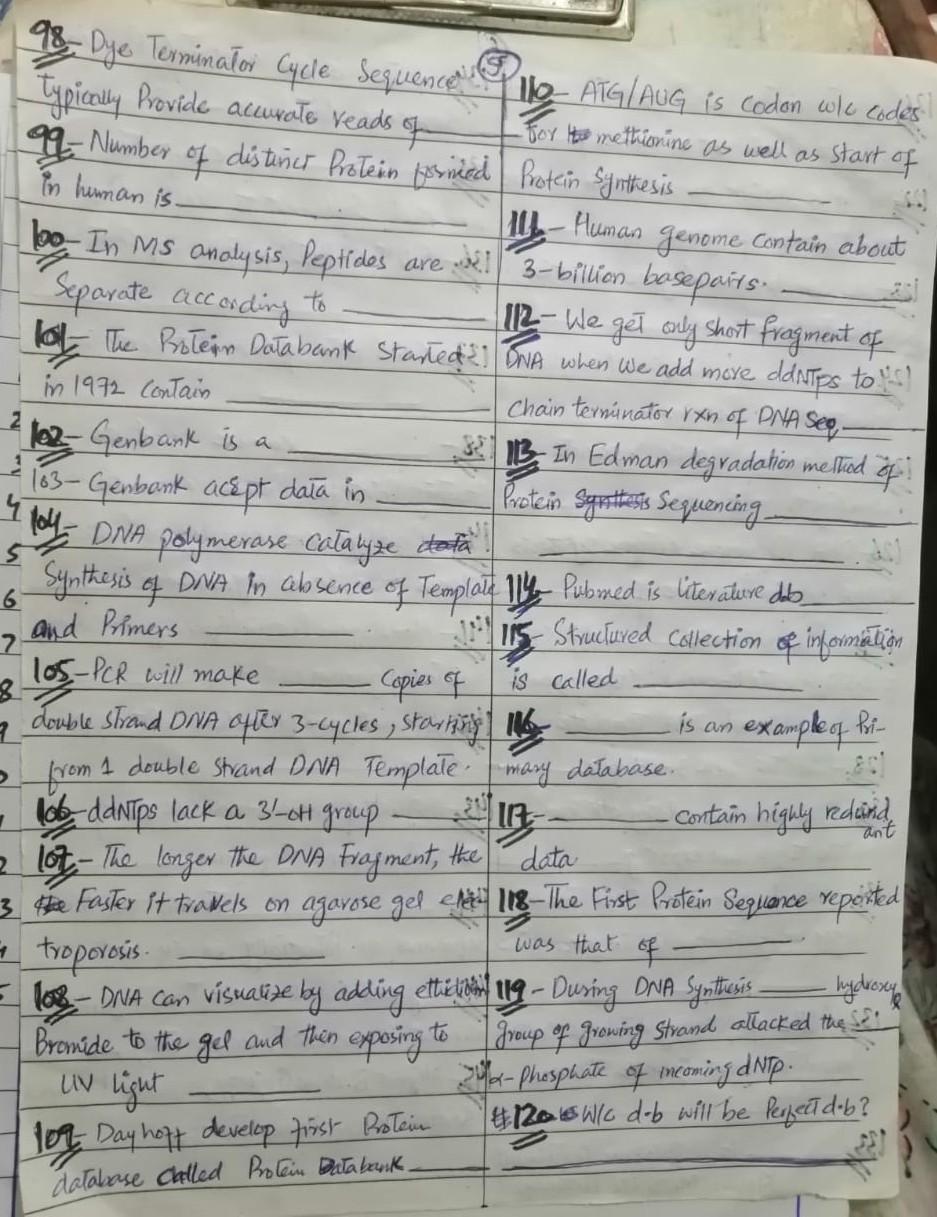 98- Dye Terminator Cycle Sequence
typically Provide accurate reads of
99- Number of distinct Protein formed
in human is
100- In MS analysis, Peptides are
Separate according to
101- The Protein Databank Started
in 1972 contain
102- Genbank is a
103- Genbank acept data in
104- DNA polymerase Catalyze data
Synthesis of DNA in absence of Template
and Primers
105- PCR will make ______ Copies of
double strand DNA after 3-cycles, starting
from 1 double strand DNA Template.
106- ddNTps lack a 3'-OH group
107- The longer the DNA Fragment, the
the Faster it travels on agarose gel elec
troporosis.
108- DNA can visualize by adding ethidium
Bromide to the gel and then exposing to
UV light
109- Dayhoff develop first Protein
database Called Protein Databank
5
110- ATG/AUG is codon w/c codes
for methionine as well as start of
Protein Synthesis
111- Human genome contain about
3-billion basepairs.
112- We get only short fragment of
DNA when we add more ddNTps to
chain terminator rxn of DNA Seq.
113- In Edman degradation method of
Protein Synthesis Sequencing
114- Pubmed is literature db
115- Structured Collection of information
is called
116- ______ is an example of Pri-
mary database.
117- ______ contain highly redund
ant
data
118- The First Protein Sequence reported
was that of
119- During DNA Synthesis ______ hydroxy
group of growing strand attacked the
α-Phosphate of incoming dNTp.
120 W/c d.b will be Perfect d.b?